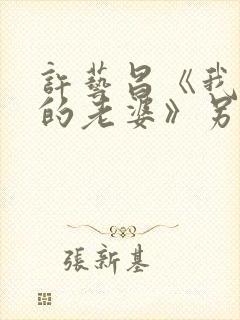 許藝昌《我
的老婆》另
張新基